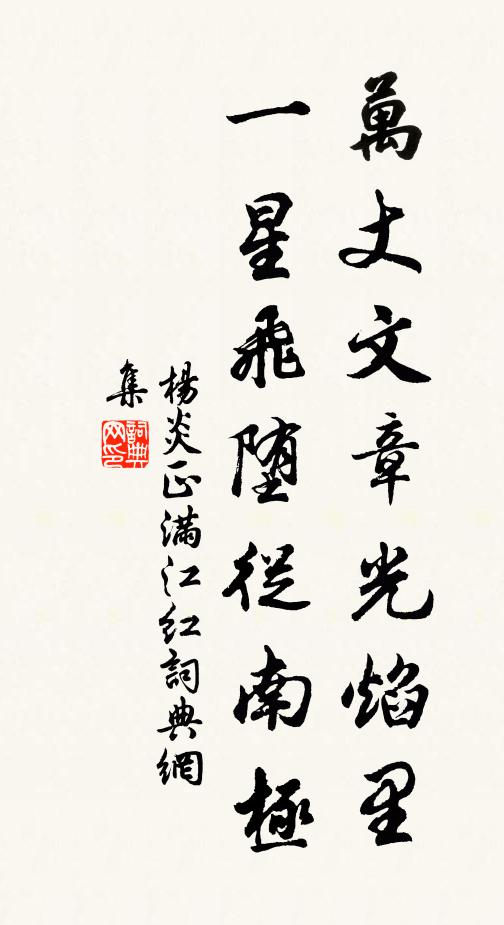 萬丈文章光焰里
一星飛墮從南極
楊炎正滿江紅詞典網
集
詞典
网印